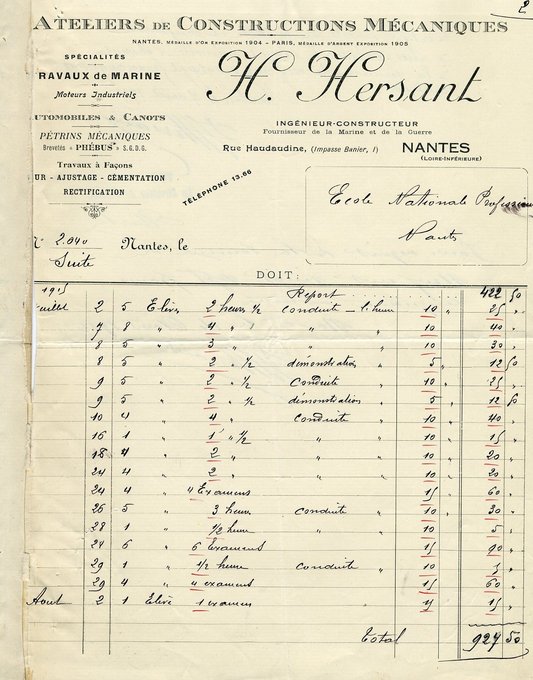 2
ATELIERS DE CONSTRUCTIONS MÉCANIQUES
NANTES, MÉDAILLE D'OR EXPOSITION 1904 – PARIS, MÉDAILLE D'ARGENT EXPOSITION 1905
SPÉCIALITÉS
RAVAUX DE MARINE
Moteurs Industriels
UTOMOBILES & CANOTS
PÉTRINS MÉCANIQUES
Brevetés « PHÉBUS » S. G. D. G.
Travaux à Façons
UR - AJUSTAGE - CÉMENTATION
RECTIFICATION
TÉLÉPHONE 13.66
H. Hersant
INGÉNIEUR-CONSTRUCTEUR
Fournisseur de la Marine et de la Guerre
Rue Haudaudine, (Impasse Banier, 1) NANTES
(LOIRE-INFÉRIEURE)
Ecole Nationale
Nantes
2.040 Nantes, le
Suite
DOIT:
1915 Report 422 50
uillet 2 5 Elèves 2 heures 1/2 conduite - l'heure 10 " 25 "
7 8 " 4 " " " 10 40 "
8 5 " 3 " " " 10 30 "
8 5 " 2 " 1/2 démonstration " 5 " 12 50
9 5 " 2 " 1/2 conduite " 10 " 25 "
9 5 " 2 " 1/2 démonstration " 5 " 12 50
10 " 4 " conduite " 10 " 40 "
16 1 " 1 " 1/2 " " 10 " 15 "
18 4 " 2 " " " 10 " 20 "
24 4 " 2 " " " 10 " 20 "
24 4 " 4 Examens 15 " 60 "
26 5 " 3 heures conduite " 10 " 30 "
28 1 " 1/2 heure " " 10 5 "
6 " 6 Examens 15 90 "
29 1 " 1/2 heure conduite " 10 5 "
29 4 " 4 examens 15 60 "
Aout 2 1 Elève 1 examen " 15 "
Total 927 50